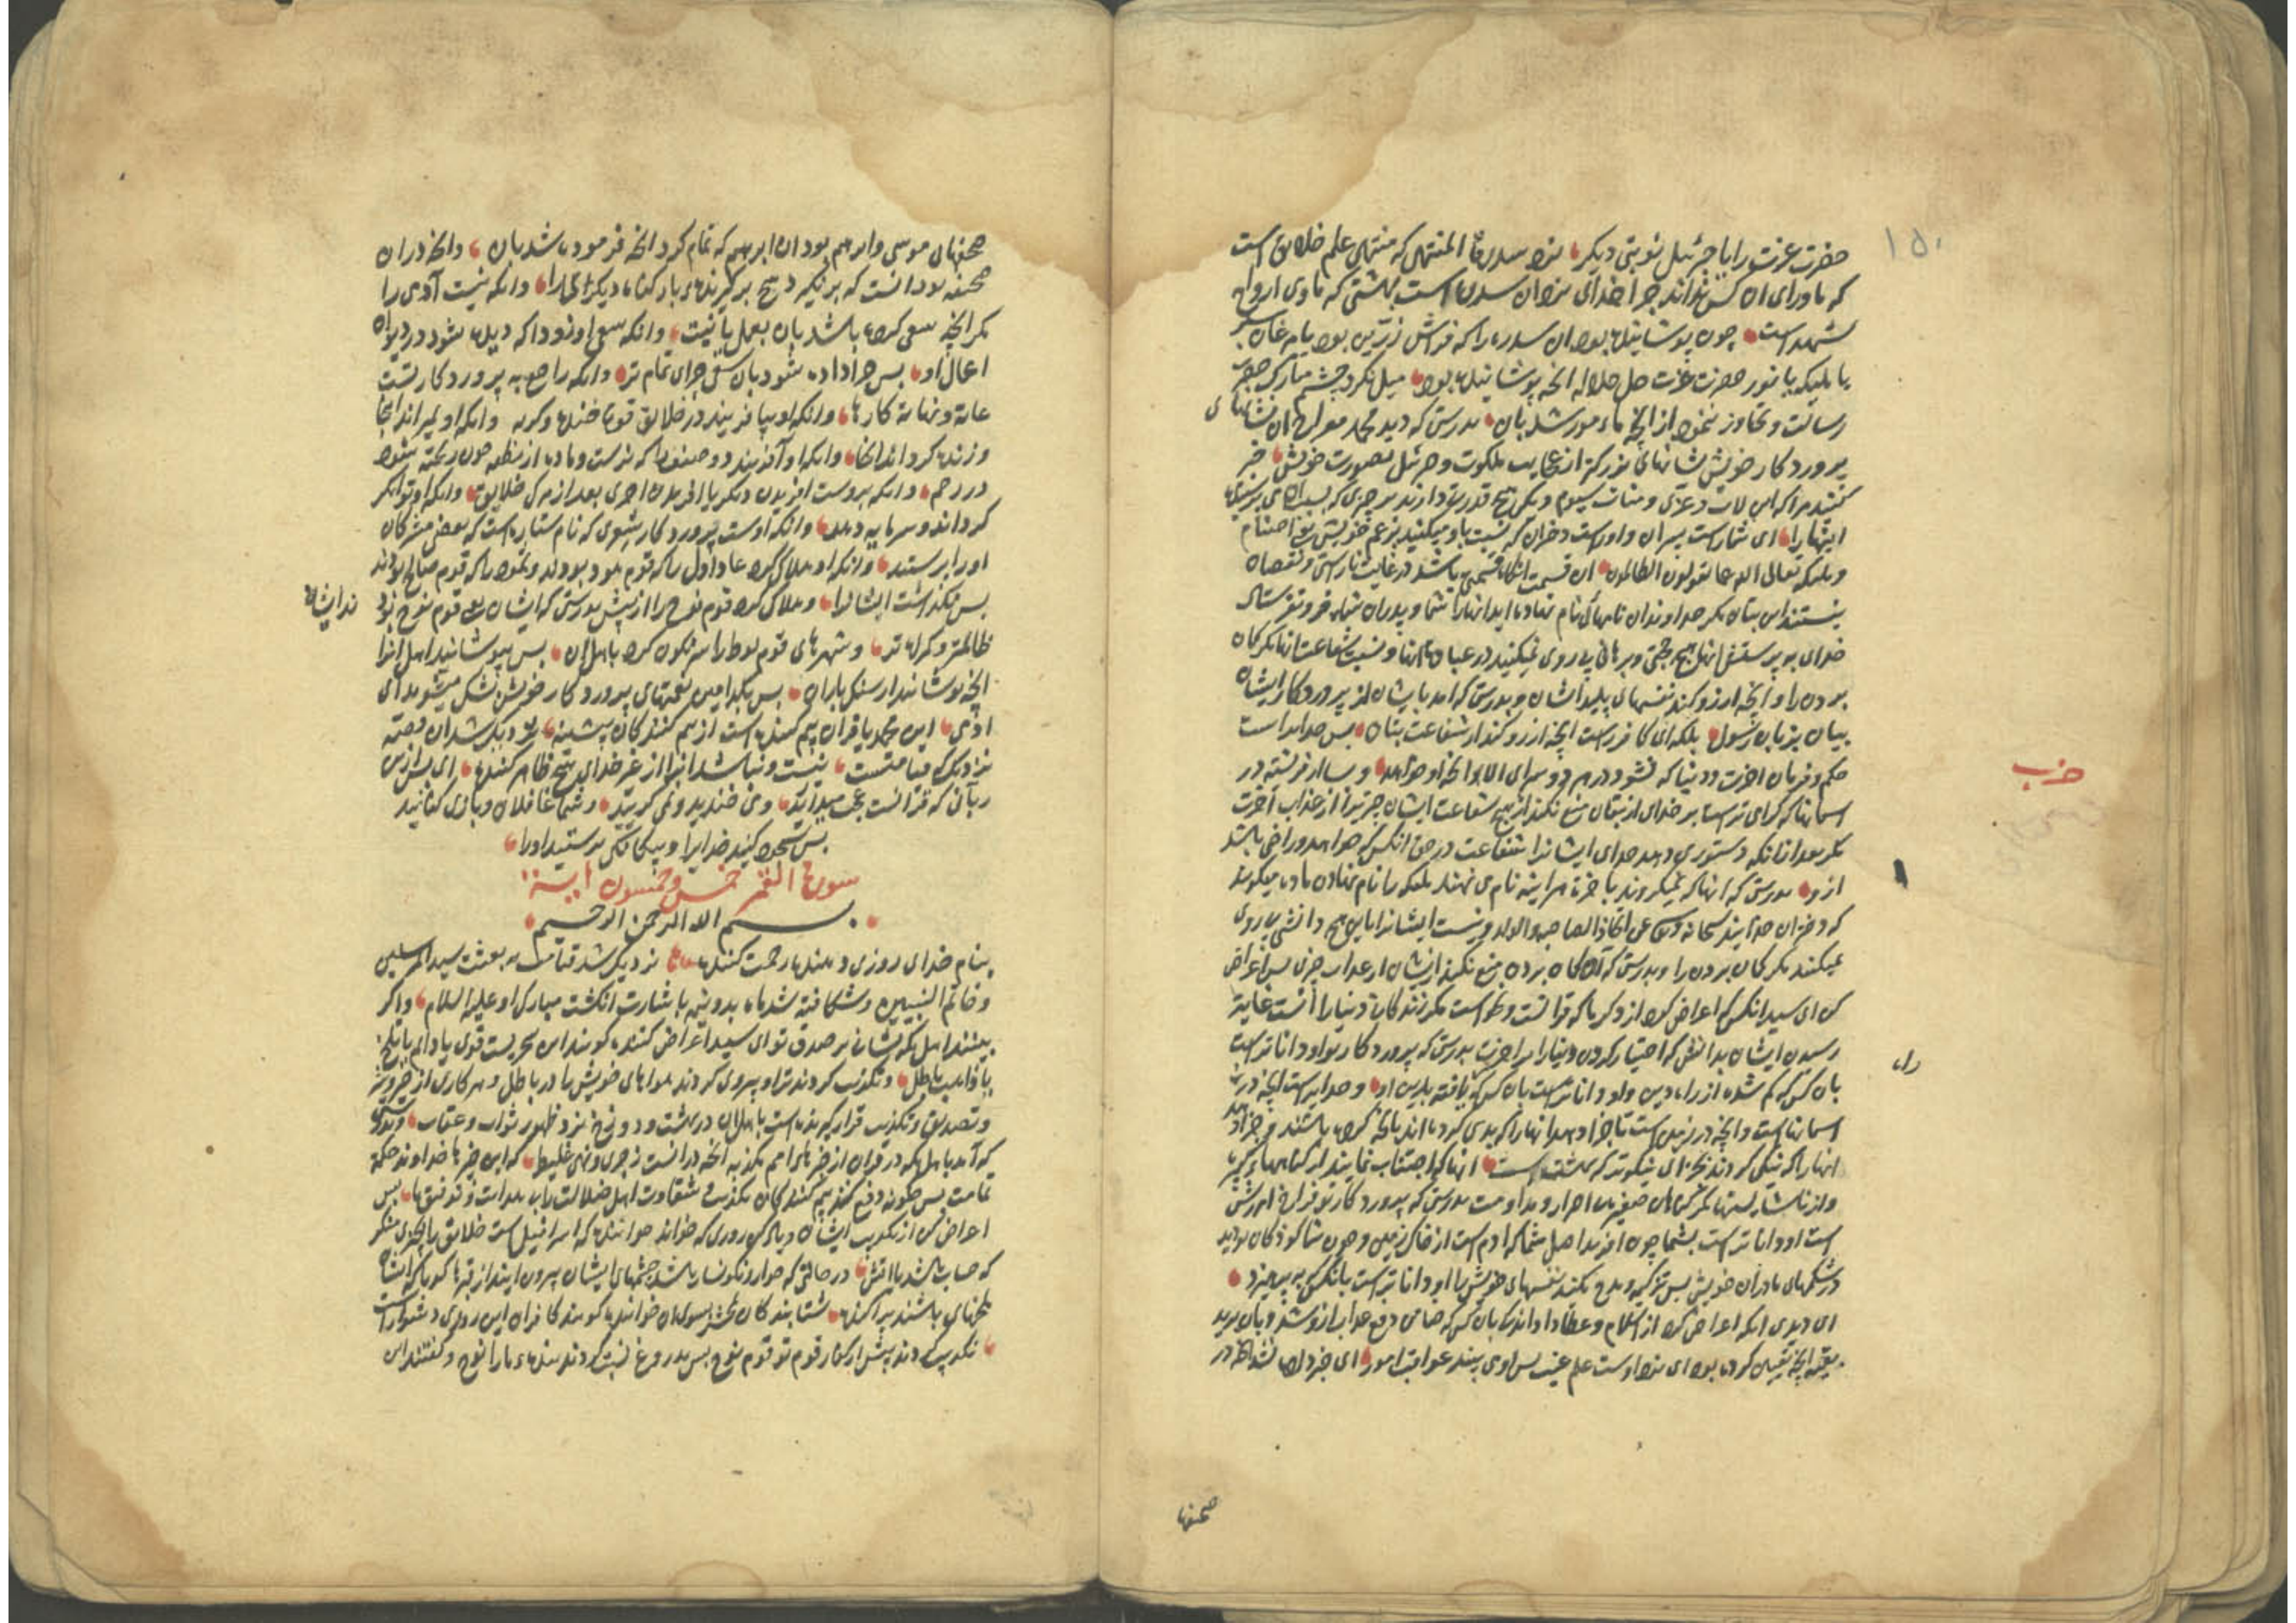 ۱۵۰
حضرت عزت را یا جبرئیل نوبتی دیگر نزد سدرة المنتهی که منتهی علم خلایق است
که ماورای آن کس نداند جز خدای نزد آن سدره است بهشتی که ماوی ارواح
شهداست چون پوشانیده بود آن سدره را که فراش زرین بود یا مرغان سبز
یا ملیکه یا نور حضرت عزت جل جلاله انچه پوشانیده بود میل نکرد چشم مبارک حضرت
رسالت و تجاوز ننمود از انچه مامور شد بان بدرستی که دید محمد در معراج ان نشانهای
پروردگار خویش نشانهای بزرگتر از عجایب ملکوت و جبرئیل بصورت خویش خبر
کنید مرا که این لات و عزی و منات سیوم دیگر هیچ قدرت دارند بر چیزی که بسبب آن می پرستید
اینها را ای شما راست پسران و او راست دختران که نسبت باو میکنید بزعم خویش
و ملیکه تعالی الله عما یقول الظالمون ان قسمت انگاه قسمتی باشد در غایت ناراستی و نقصان
نیستند این بتان مگر خداوندان نامهای نام نهاده اید انها را شما و پدران شما فرو نفرستاد
خدای بر پرستش انها هیچ حجتی و برهانی پی روی نمیکنید در عبادت انها و نسبت شفاعت انها مگر گمان
بردن را و انچه ارزو کند نفسهای پلید ایشان و بدرستی که امد بایشان از پروردگار ایشان
بیان بزبان رسول بلکه ای کافر راست انچه ارزو کند از شفاعت بتان پس خدایراست
حکم و فرمان اخرت و دنیا که نشود در هر دو سرای الا انچه او خواهد و بسا از فرشته در
حزب
اسمانها که گرامی تر است بر خدای از بتان منع نکند از هیچ شفاعت ایشان چیزی را از عذاب آخرت
مگر بعد از انکه دستوری دهد خدای ایشانرا شفاعت در حق انکس که خواهد و راضی باشد
ازو بدرستی که انها که نمیگروند باخرت هراینه نام می نهند ملیکه را نام نهادن ماده میگویند
که دختران خدایند سبحانه و تعالی عن اتخاذ الصاحبة و الولد و نیست ایشانرا باین هیچ دانشی پی روی
نمیکنند مگر گمان بردن را و بدرستی که گمان بردن منع نکند از ایشان از عذاب چیزی پس اعراض
کن ای سید از انکس که اعراض کرد از ذکر ما که قرانست و نخواست مگر زندگانی دنیا را انست غایت
رسیدن ایشان بدانش که اختیار کردن دنیا را بر اخرت بدرستی که پروردگار تو او داناتر است
بان کس که گم شده از راه دین و او داناتر است بان کس که راه یافته بدین او و خدایراست انچه در
راه
اسمانهاست و انچه در زمین است تا جزا دهد انها را که بدی کرده اند بانچه کرده باشند و جزا دهد
انها را که نیکی کردند بجزای نیکوتر که بهشت است انها که اجتناب نمایند از گناههای کبیره
و از ناشایستها مگر گناهان صغیره بی اصرار و مداومت بدرستی که پروردگار تو فراخ امرزش
است او داناتر است بشما چون افرید اصل شما که ادم است از خاک زمین و چون شما کودکان بودید
در شکمهای مادران خویش پس تزکیه و مدح مکنید نفسهای خویش را او داناتر است بانکس که بپرهیزد
ای دیدی انکه اعراض کرد از اسلام و عطا داد اندک بان کس که ضامن دفع عذاب ازو شد و بان برید
بقیه انچه تعیین کرده بود ای نزد اوست علم غیب پس او می بیند عواقب امور ای خبر داده نشد انچه در
صحفها
صحفهای موسی و ابرهیم بود ان ابرهیم که تمام کرد انچه فرموده شد بان و انچه در ان
صحف بود انست که بر نگیرد هیچ برگیرنده بار گناه دیگری را و انکه نیست آدمی را
مگر انچه سعی کرده باشد بان بعمل یا نیت و انکه سعی او زود که دیده شود در دیوان
اعمال او پس جزا داده شود بان سعی جزای تمام تر و انکه راجع به پروردگار تست
عاقبت و نهایت کارها و انکه او بیافریند در خلایق قوت خنده و گریه و انکه او بمیراند احیا
و زنده گرداند اموات و انکه او آفریند دو صنف را که نرست و ماده از نطفه چون ریخته شود
در رحم و انکه بروست افریدن دیگر یا افریدن اخری بعد از مرگ خلایق و انکه او توانگر
گرداند و سرمایه دهد و انکه اوست پروردگار شعری که نام ستاره است که بعضی مشرکان
او را پرستند و انکه او هلاک کرد عاد اول را که قوم هود بودند و ثمود را که قوم صالح بودند
پس نگذاشت ایشانرا و هلاک کرد قوم نوح را از پیش بدرستی که ایشان یعنی قوم نوح بود
ند ایشان
ظالمتر و گمراه تر و شهرهای قوم لوط را سرنگون کرد با اهل ان پس بپوشانید اهل انرا
انچه پوشانید از سنگ باران پس بکدامین نعمتهای پروردگار خویش شک میشوید ای
ادمی این محمد یا قران بیم کننده است از بیم کنندگان پیشینه نزدیک شد ان قصه
نزدیک که قیامتست نیست و نباشد انرا از غیر خدای هیچ ظاهر کننده ای پس ازین
ربانی که قرانست عجب میدارید و می خندید و نمی گریید و شما غافلان و بازی کنانید
پس سجود کنید خدایرا و بیگانگی پرستید او را
سورة القمر خمس و خمسون ایة
بسم الله الرحمن الرحیم
بنام خدای روزی دهنده رحمت کننده نزدیک شد قیامت به بعثت سید المرسلین
و خاتم النبیین و شکافته شد ماه بدو نیم باشارت انگشت مبارک او علیه السلام و اگر
بینند اهل مکه نشانی بر صدق تو ای سید اعراض کنند و گویند این سحریست قوی یا دایم
یا ذاهب باطل و تکذیب کردند ترا و پیروی کردند هواهای خویش را در باطل و هر کاری از خیر و شر
و تصدیق و تکذیب قرار گیرنده است باهل ان در بهشت و دوزخ نزد ظهور ثواب و عقاب و بدرستی
که آمد باهل مکه در قران از خبرهای امم مکذبه انچه در انست زجری و نهی غلیظ که این خبرها خداوند حکمة
تمامست پس چگونه دفع کند بیم کنندگان مکذب شقاوت اهل ضلالت را بی هدایت و توفیق ما پس
اعراض کن از تکذیب ایشان و یاد کن روزی که خواند خواننده که اسرافیل است خلایق را بچیزی منکر
که حسابست یا اتش در حالتی که خوار و نگونسار باشد چشمهای ایشان بیرون ایند از قبرها گویا که ایشان
ملخهای باشند پراکنده شتابندگان بسوی ان خواننده گویند کافران این روزی دشوار است
تکذیب کردند پیش از کفار قوم تو قوم نوح پس بدروغ نسبت کردند بنده ما را نوح و گفتند این